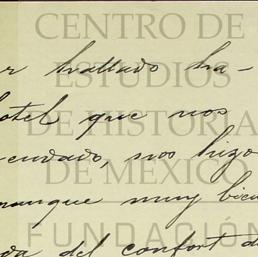 CENTRO DE
r hallado ha-
ESTUDIOS
hotel que nos
DE HISTORIA
endado, nos hizo
DE MEXICO
aunque muy bien
FUNDACIÓN
da del confort d